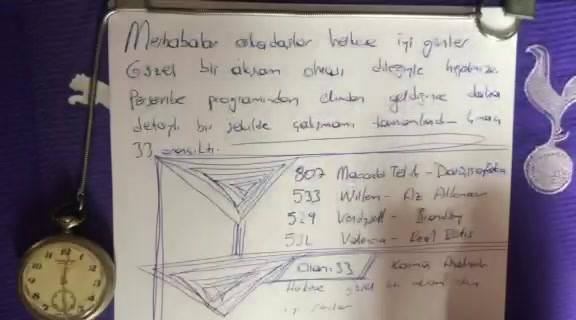 Merhabalar arkadaşlar herkese iyi günler
Güzel bir akşam olması dileğiyle hepimize.
Perşembe programından elimden geldiğince daha
detaylı bir şekilde çalışmamı tamamladım 4 maç
33 oranlıktı.
807 Maccabi Tel A -
533 Willem - Az Alkmaar
529 - Brondby
532 Valencia - Real Betis
Oran: 33
Herkese güzel bir akşam